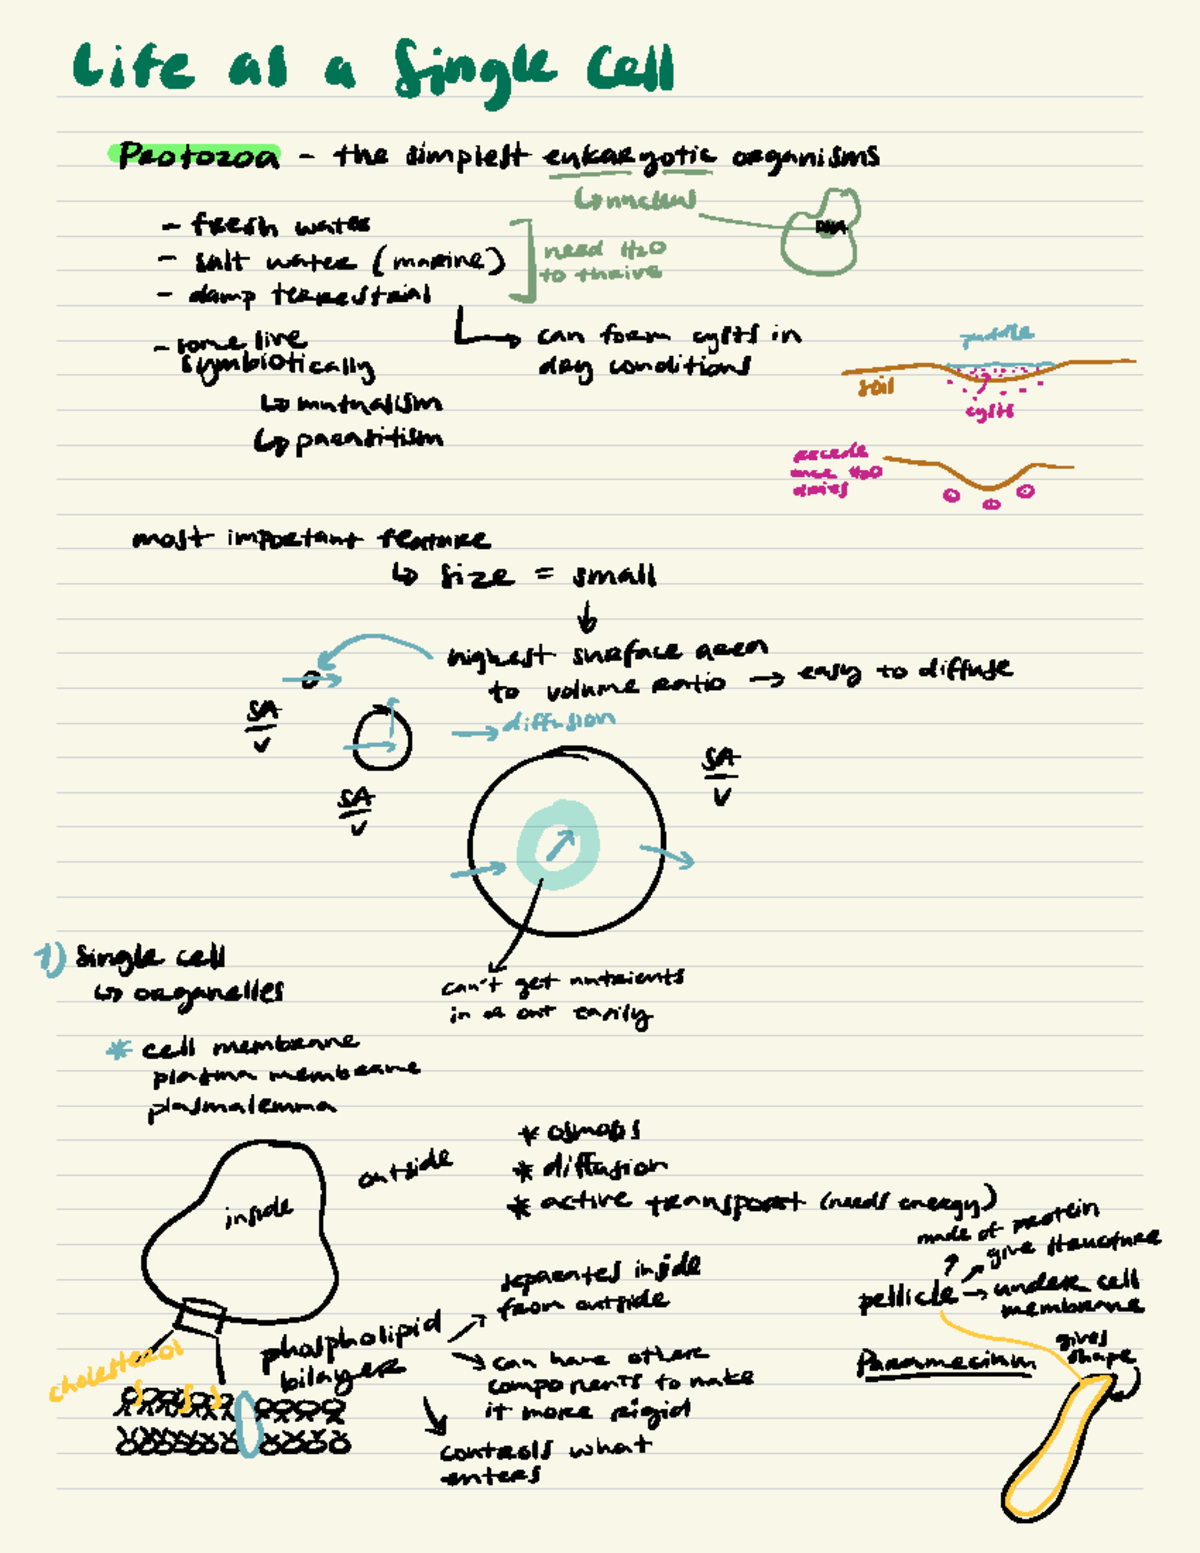 Life as a Single Cell
Protozoa - the simplest eukaryotic organisms
↳ nucleus
DNA
- fresh water
- salt water (marine)
- damp terrestrial
need H2O
to thrive
- some live
symbiotically
↳ mutualism
↳ parasitism
can form cysts in
dry conditions
puddle
soil
cysts
once H2O
dries
most important feature
↳ size = small
highest surface area
to volume ratio → easy to diffuse
→ diffusion
SA
V
SA
V
SA
V
can't get nutrients
in or out easily
1) Single cell
↳ organelles
* cell membrane
plasma membrane
plasmalemma
inside
outside
* osmosis
* diffusion
* active transport (needs energy)
cholesterol
phospholipid
bilayer
separates inside
from outside
can have other
components to make
it more rigid
controls what
enters
made of protein
give structure
pellicle → under cell
membrane
Paramecium
gives
shape